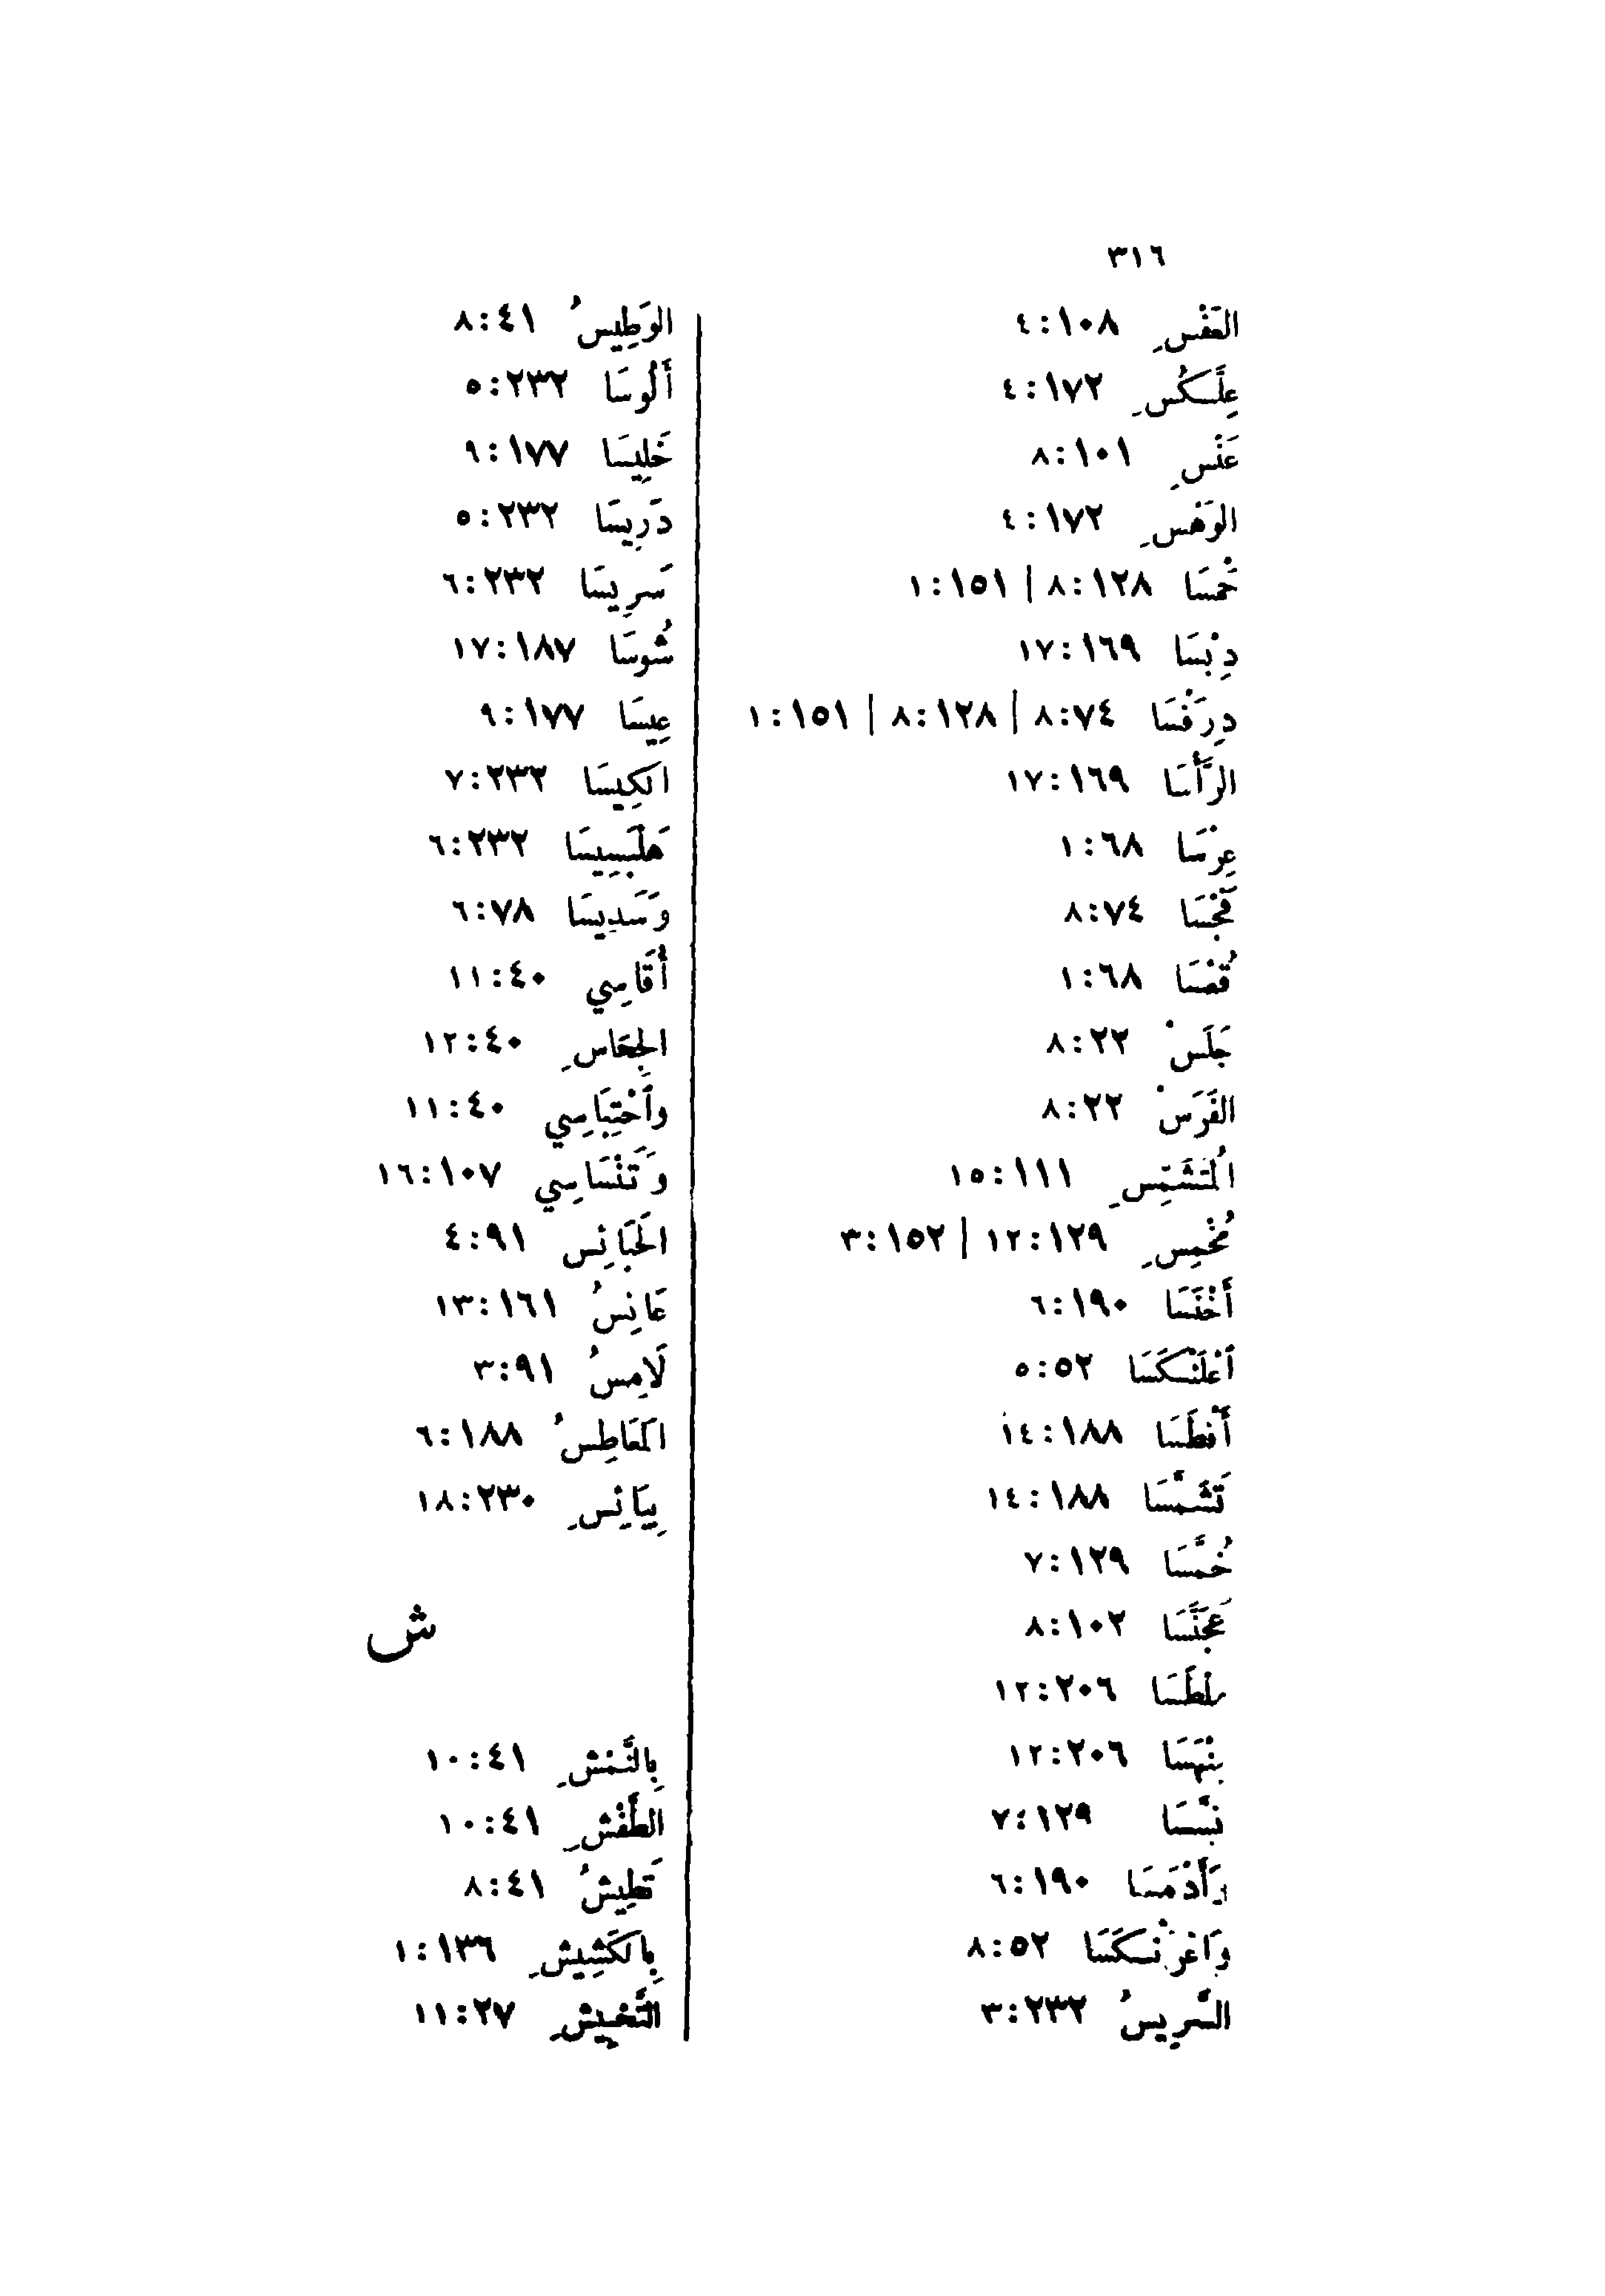 ٣١٦
العَفْسِ ٤:١٠٨
عِلَّكْسِ ٤:١٧٢
عَنْسِ ٨:١٠١
الوَهْسِ ٤:١٧٢
خَمْسَا ٨:١٢٨ | ١:١٥١
دِبْسَا ١٧:١٦٩
دِرَفْسَا ٨:٧٤ | ٨:١٢٨ | ١:١٥١
الرَّأْسَا ١٧:١٦٩
عِرْسَا ١:٦٨
فَجْسَا ٨:٧٤
قُعْسَا ١:٦٨
جَلَسْ ٨:٢٢
الفَرَسْ ٨:٢٢
المُتَشَمِّسِ ١٥:١١١
مُخْمِسِ ١٢:١٢٩ | ٣:١٥٢
أَخْنَسَا ٦:١٩٠
اَعْلَنْكَسَا ٥:٥٢
أَفْطَسَا ١٤:١٨٨
تَشَمَّسَا ١٤:١٨٨
خُمَّسَا ٧:١٢٩
عَجَنَّسَا ٨:١٠٢
١٢:٢٠٦
١٢:٢٠٦
٧:١٢٩
وَأَدْمَسَا ٦:١٩٠
وَاَعْرَنْكَسَا ٨:٥٢
السَّرِيسُ ٣:٢٣٢
الوَطِيسُ ٨:٤١
أَلُوسَا ٥:٢٣٢
خَلِيسَا ٩:١٧٧
دَرِيسَا ٥:٢٣٢
سَرِيسَا ٦:٢٣٢
شُوسَا ١٧:١٨٧
عِيسَا ٩:١٧٧
الكِيسَا ٧:٢٣٢
هَلْبَسِيسَا ٦:٢٣٢
وَسَدِيسَا ٦:٧٨
أُقَاسِي ١١:٤٠
الجِحَاسِ ١٢:٤٠
وَاَحْتِبَاسِي ١١:٤٠
وَتَنْسَاسِي ١٦:١٠٧
الحَبَائِس ٤:٩١
عَانِسُ ١٣:١٦١
لَامِسُ ٣:٩١
المَعَاطِسُ ٦:١٨٨
بِيَائِسِ ١٨:٢٣٠
ش
بِالنَّمْشِ ١٠:٤١
الطَّفْشِ ١٠:٤١
تَطِيشُ ٨:٤١
بِالكَشِيشِ ١:١٣٦
١١:٢٧